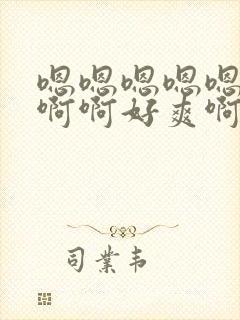 嗯嗯嗯嗯嗯
啊啊好爽啊
司业韦